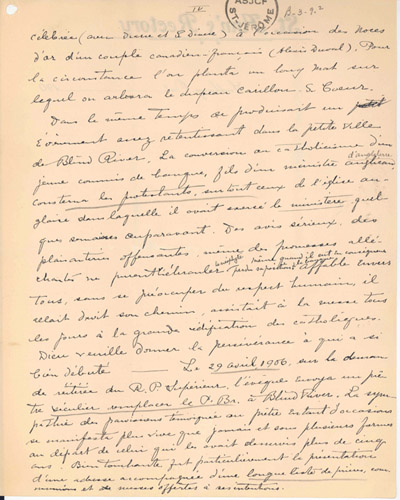 IV.
ASJCF
ST-JÉRÔME
B-3-9.2
célébrée (avec Diacre et S. Diacre) à l'occasion des Noces
d'or d'un couple canadien-français (Alexis Duval). Pour
la circonstance l'on planta un long mat sur
lequel on arbora le drapeau Carillon - S. Coeur.
Dans le même temps se produisait un petit
événement assez retentissant dans la petite ville
de Blind River. La conversion au catholicisme d'un
jeune commis de banque, fils d'un ministre anglican
d'Angleterre
consterna les protestants, surtout ceux de l'église an-
glicane dans laquelle il avait exercé le ministère quel-
ques semaines auparavant. Des avis sérieux, des
plaisanteries offensantes, même des promesses allé-
chantes ne purent l'ébranler. affable envers
tous, sans se préoccuper du respect humain, il
allait droit son chemin, assistait à la messe tous
les jours à la grande édification des catholiques.
Dieu veuille donner la persévérance à qui a si
bien débuté. — Le 29 avril 1906, sur la deman-
de réitérée du R. P. Supérieur, l'évêque envoya un prê-
tre séculier remplacer le P. Br. à Blind River. La sym-
pathie des paroissiens témoignée au prêtre en tant d'occasions
se manifesta plus vive que jamais et sous plusieurs formes
au départ de celui qui les avait desservis plus de cinq
ans. Bien touchante fut particulièrement la présentation
d'une adresse accompagnée d'une longue liste de prières, com-
munions et de messes offertes à ses intentions.